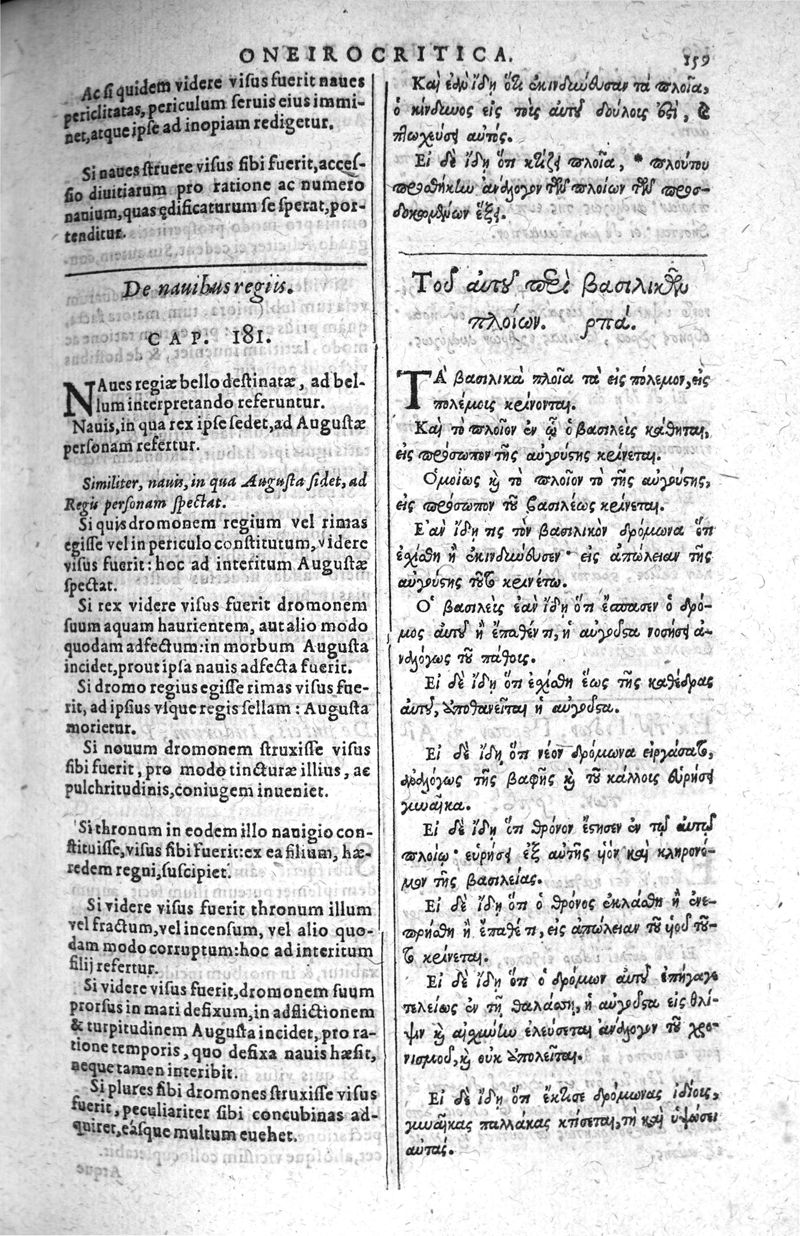 ONEIROCRITICA. 159
Ac si quidem videre visus fuerit naues
periclitatas, periculum seruis eius immi-
net, atque ipse ad inopiam redigetur.
Si naues struere visus sibi fuerit, acces-
sio diuitiarum pro ratione ac numero
nauium, quas ędificaturum se sperat, por-
tenditur.
De nauibus regiis.
CAP. 181.
NAues regiæ bello destinatæ, ad bel-
lum interpretando referuntur.
Nauis, in qua rex ipse sedet, ad Augustæ
personam refertur.
Similiter, nauis, in qua Augusta sidet, ad
Regis personam spectat.
Si quis dromonem regium vel rimas
egisse vel in periculo constitutum, videre
visus fuerit: hoc ad interitum Augustæ
spectat.
Si rex videre visus fuerit dromonem
suum aquam haurientem, aut alio modo
quodam adfectum: in morbum Augusta
incidet, prout ipsa nauis adfecta fuerit.
Si dromo regius egisse rimas visus fue-
rit, ad ipsius vsque regis sellam: Augusta
morietur.
Si nouum dromonem struxisse visus
sibi fuerit, pro modo tincturæ illius, ac
pulchritudinis, coniugem inueniet.
Si thronum in eodem illo nauigio con-
stituisse, visus sibi fuerit: ex ea filium, hæ-
redem regni, suscipiet.
Si videre visus fuerit thronum illum
vel fractum, vel incensum, vel alio quo-
dam modo corruptum: hoc ad interitum
filij refertur.
Si videre visus fuerit, dromonem suum
prorsus in mari defixum, in adflictionem
& turpitudinem Augusta incidet, pro ra-
tione temporis, quo defixa nauis hæsit,
neque tamen interibit.
Si plures sibi dromones struxisse visus
fuerit, peculiariter sibi concubinas ad-
quiret, easque multum euehet.
Καὶ ἐὰν ἴδῃ ὅτι ἐκινδύνευσαν τὰ πλοῖα,
ὁ κίνδυνος εἰς τοὺς αὐτοῦ δούλους ἐστὶ, καὶ
πτωχεύσει αὐτός.
Εἰ δὲ ἴδῃ ὅτι κτίζει πλοῖα, * πλούτου
προσθήκην ἀνάλογον τῶν πλοίων τῶν προσ-
δοκωμένων ἕξει.
Τοῦ αὐτοῦ περὶ βασιλικῶν
πλοίων. ρπά.
ΤΑ βασιλικὰ πλοῖα τὰ εἰς πόλεμον, εἰς
πολέμοις κρίνονται.
Καὶ τὸ πλοῖον ἐν ᾧ ὁ βασιλεὺς κάθηται,
εἰς πρόσωπον τῆς αὐγούστης κρίνεται.
Ὁμοίως καὶ τὸ πλοῖον τὸ τῆς αὐγούστης,
εἰς πρόσωπον τοῦ βασιλέως κρίνεται.
Ἐὰν ἴδῃ τις τὸν βασιλικὸν δρόμωνα ὅτι
ἐχίσθη ἢ ἐκινδύνευσεν· εἰς ἀπώλειαν τῆς
αὐγούστης τοῦτο κρινέτω.
Ὁ βασιλεὺς ἐὰν ἴδῃ ὅτι ἔσπασεν ὁ δρό-
μος αὐτοῦ ἢ ἔπαθέν τι, ἡ αὐγοῦστα νοσήσει ἀ-
ναλόγως τοῦ πάθους.
Εἰ δὲ ἴδῃ ὅτι ἐχίσθη ἕως τῆς καθέδρας
αὐτοῦ, ἀποθανεῖται ἡ αὐγοῦστα.
Εἰ δὲ ἴδῃ ὅτι νέον δρόμωνα εἰργάσατο,
ἀναλόγως τῆς βαφῆς καὶ τοῦ κάλλους εὑρήσει
γυναῖκα.
Εἰ δὲ ἴδῃ ὅτι θρόνον ἔστησεν ἐν τῷ αὐτῷ
πλοίῳ· εὑρήσει ἐξ αὐτῆς υἱὸν καὶ κληρονό-
μον τῆς βασιλείας.
Εἰ δὲ ἴδῃ ὅτι ὁ θρόνος ἐκλάσθη ἢ ἐνε-
πρήσθη ἢ ἔπαθέ τι, εἰς ἀπώλειαν τοῦ υἱοῦ τοῦ-
το κρίνεται.
Εἰ δὲ ἴδῃ ὅτι ὁ δρόμων αὐτοῦ ἐπήγαγε
τελείως ἐν τῇ θαλάσσῃ, ἡ αὐγοῦστα εἰς θλί-
ψιν καὶ αἰσχύνην ἐλεύσεται ἀνάλογον τοῦ χρο-
νισμοῦ, καὶ οὐκ ἀπολεῖται.
Εἰ δὲ ἴδῃ ὅτι ἔκτισε δρόμωνας ἰδίους,
γυναῖκας παλλακὰς κτήσεται, καὶ ὑψώσει
αὐτάς.